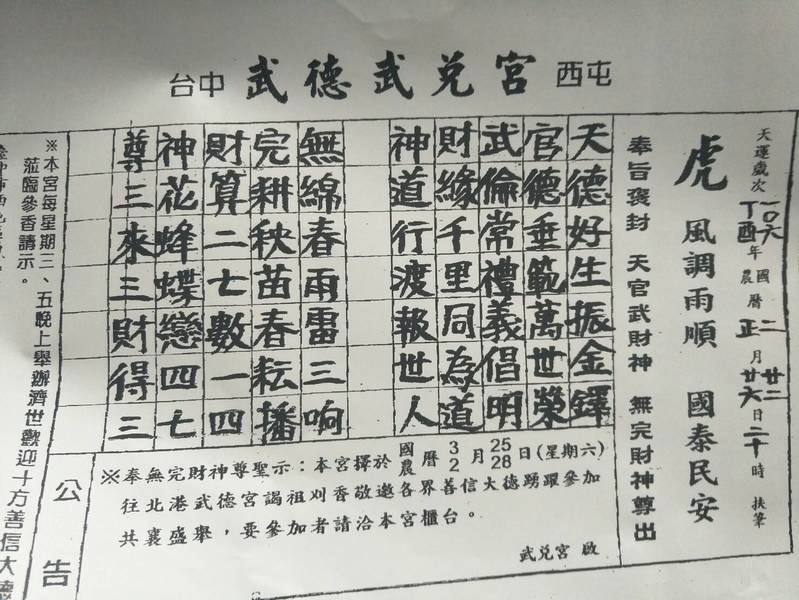 台中 武德武兌宮 西屯
天運歲次丁酉一〇六年國農曆二正月廿二廿六日二十時 扶筆
虎 風調雨順 國泰民安
奉旨褒封 天官武財神 無完財神尊出
天德好生振金鐸
官德垂範萬世榮
武倫常禮義倡明
財緣千里同為道
神道行渡報世人
無綿春雨雷三响
完耕秧苗春耘播
財算二七數一四
神花蜂蝶戀四七
尊三來三財得三
公告
※奉無完財神尊聖示：本宮擇於國曆3月25日農曆2月28日(星期六)
往北港武德宮謁祖刈香敬邀各界善信大德踴躍參加
共襄盛舉，要參加者請洽本宮櫃台。
武兌宮 啟
※本宮每星期三、五晚上舉辦濟世歡迎十方善信大德
蒞臨參香請示。